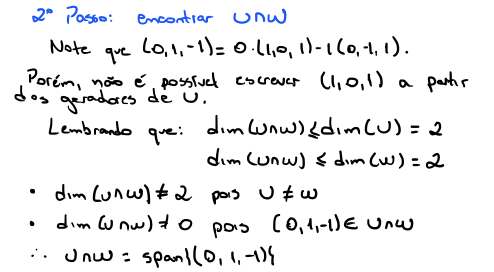 2º Passo: encontrar U∩W
Note que (0,1,-1) = 0·(1,0,1)-1(0,-1,1).
Porém, não é possível escrever (1,0,1) a partir
dos geradores de U.
Lembrando que: dim(U∩W) ≤ dim(U) = 2
dim(U∩W) ≤ dim(W) = 2
• dim(U∩W) ≠ 2 pois U ≠ W
• dim(U∩W) ≠ 0 pois (0,1,-1) ∈ U∩W
∴ U∩W = span{(0,1,-1)}